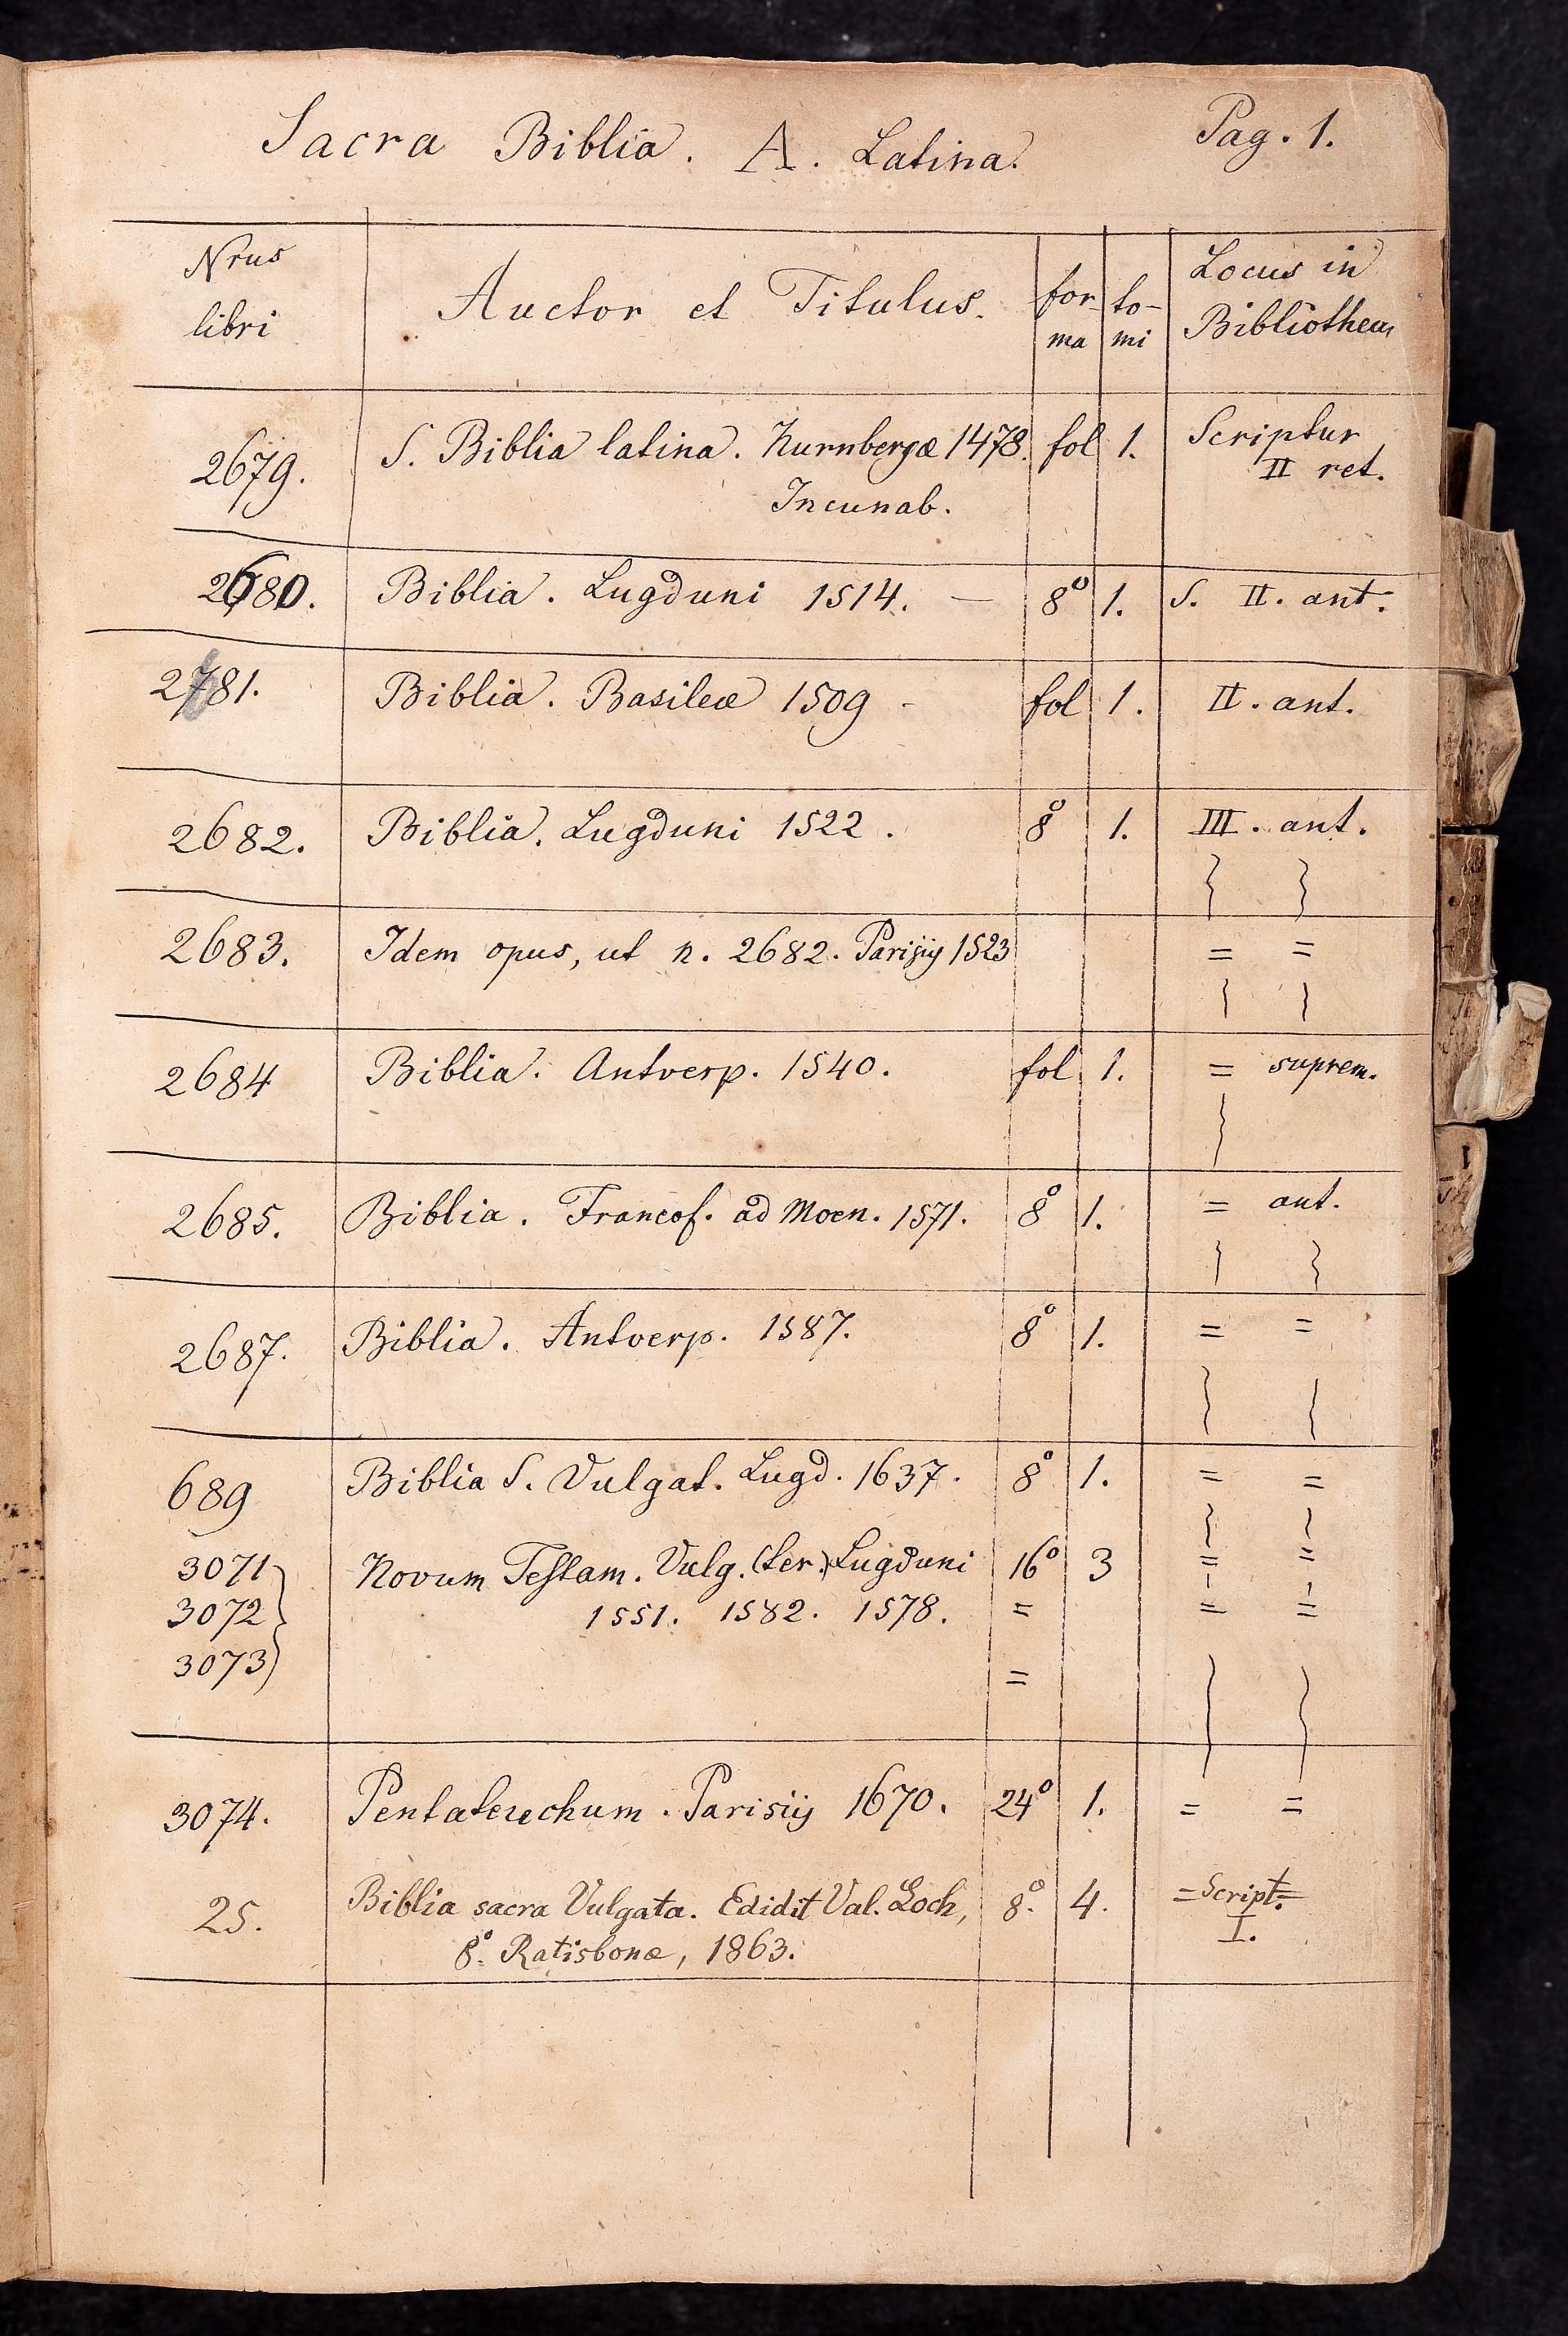 Sacra Biblia. A. Latina. Pag. 1.
Nrus libri Auctor et Titulus. for-ma to-mi Locus in Bibliotheca
2679. S. Biblia latina. Nurnbergæ 1478. fol 1. Scriptur
Incunab. II ret.
2680. Biblia. Lugduni 1514. — 8° 1. S. II. ant.
2681. Biblia. Basileæ 1509 - fol 1. II. ant.
2682. Biblia. Lugduni 1522. 8° 1. III. ant.
2683. Idem opus, ut n. 2682. Parisijs 1523 = =
2684 Biblia. Antverp. 1540. fol 1. = suprem.
2685. Biblia. Francof. ad Moen. 1571. 8° 1. = ant.
2687. Biblia. Antverp. 1587. 8° 1. = =
689 Biblia S. Vulgat. Lugd. 1637. 8° 1. = =
3071 Novum Testam. Vulg. (ter.) Lugduni 16° 3 = =
3072 1551. 1582. 1578. = = =
3073 =
3074. Pentateuchum. Parisiis 1670. 24° 1. = =
25. Biblia sacra Vulgata. Edidit Val. Loch, 8°. 4. = Script. =
8°. Ratisbonæ, 1863. I.